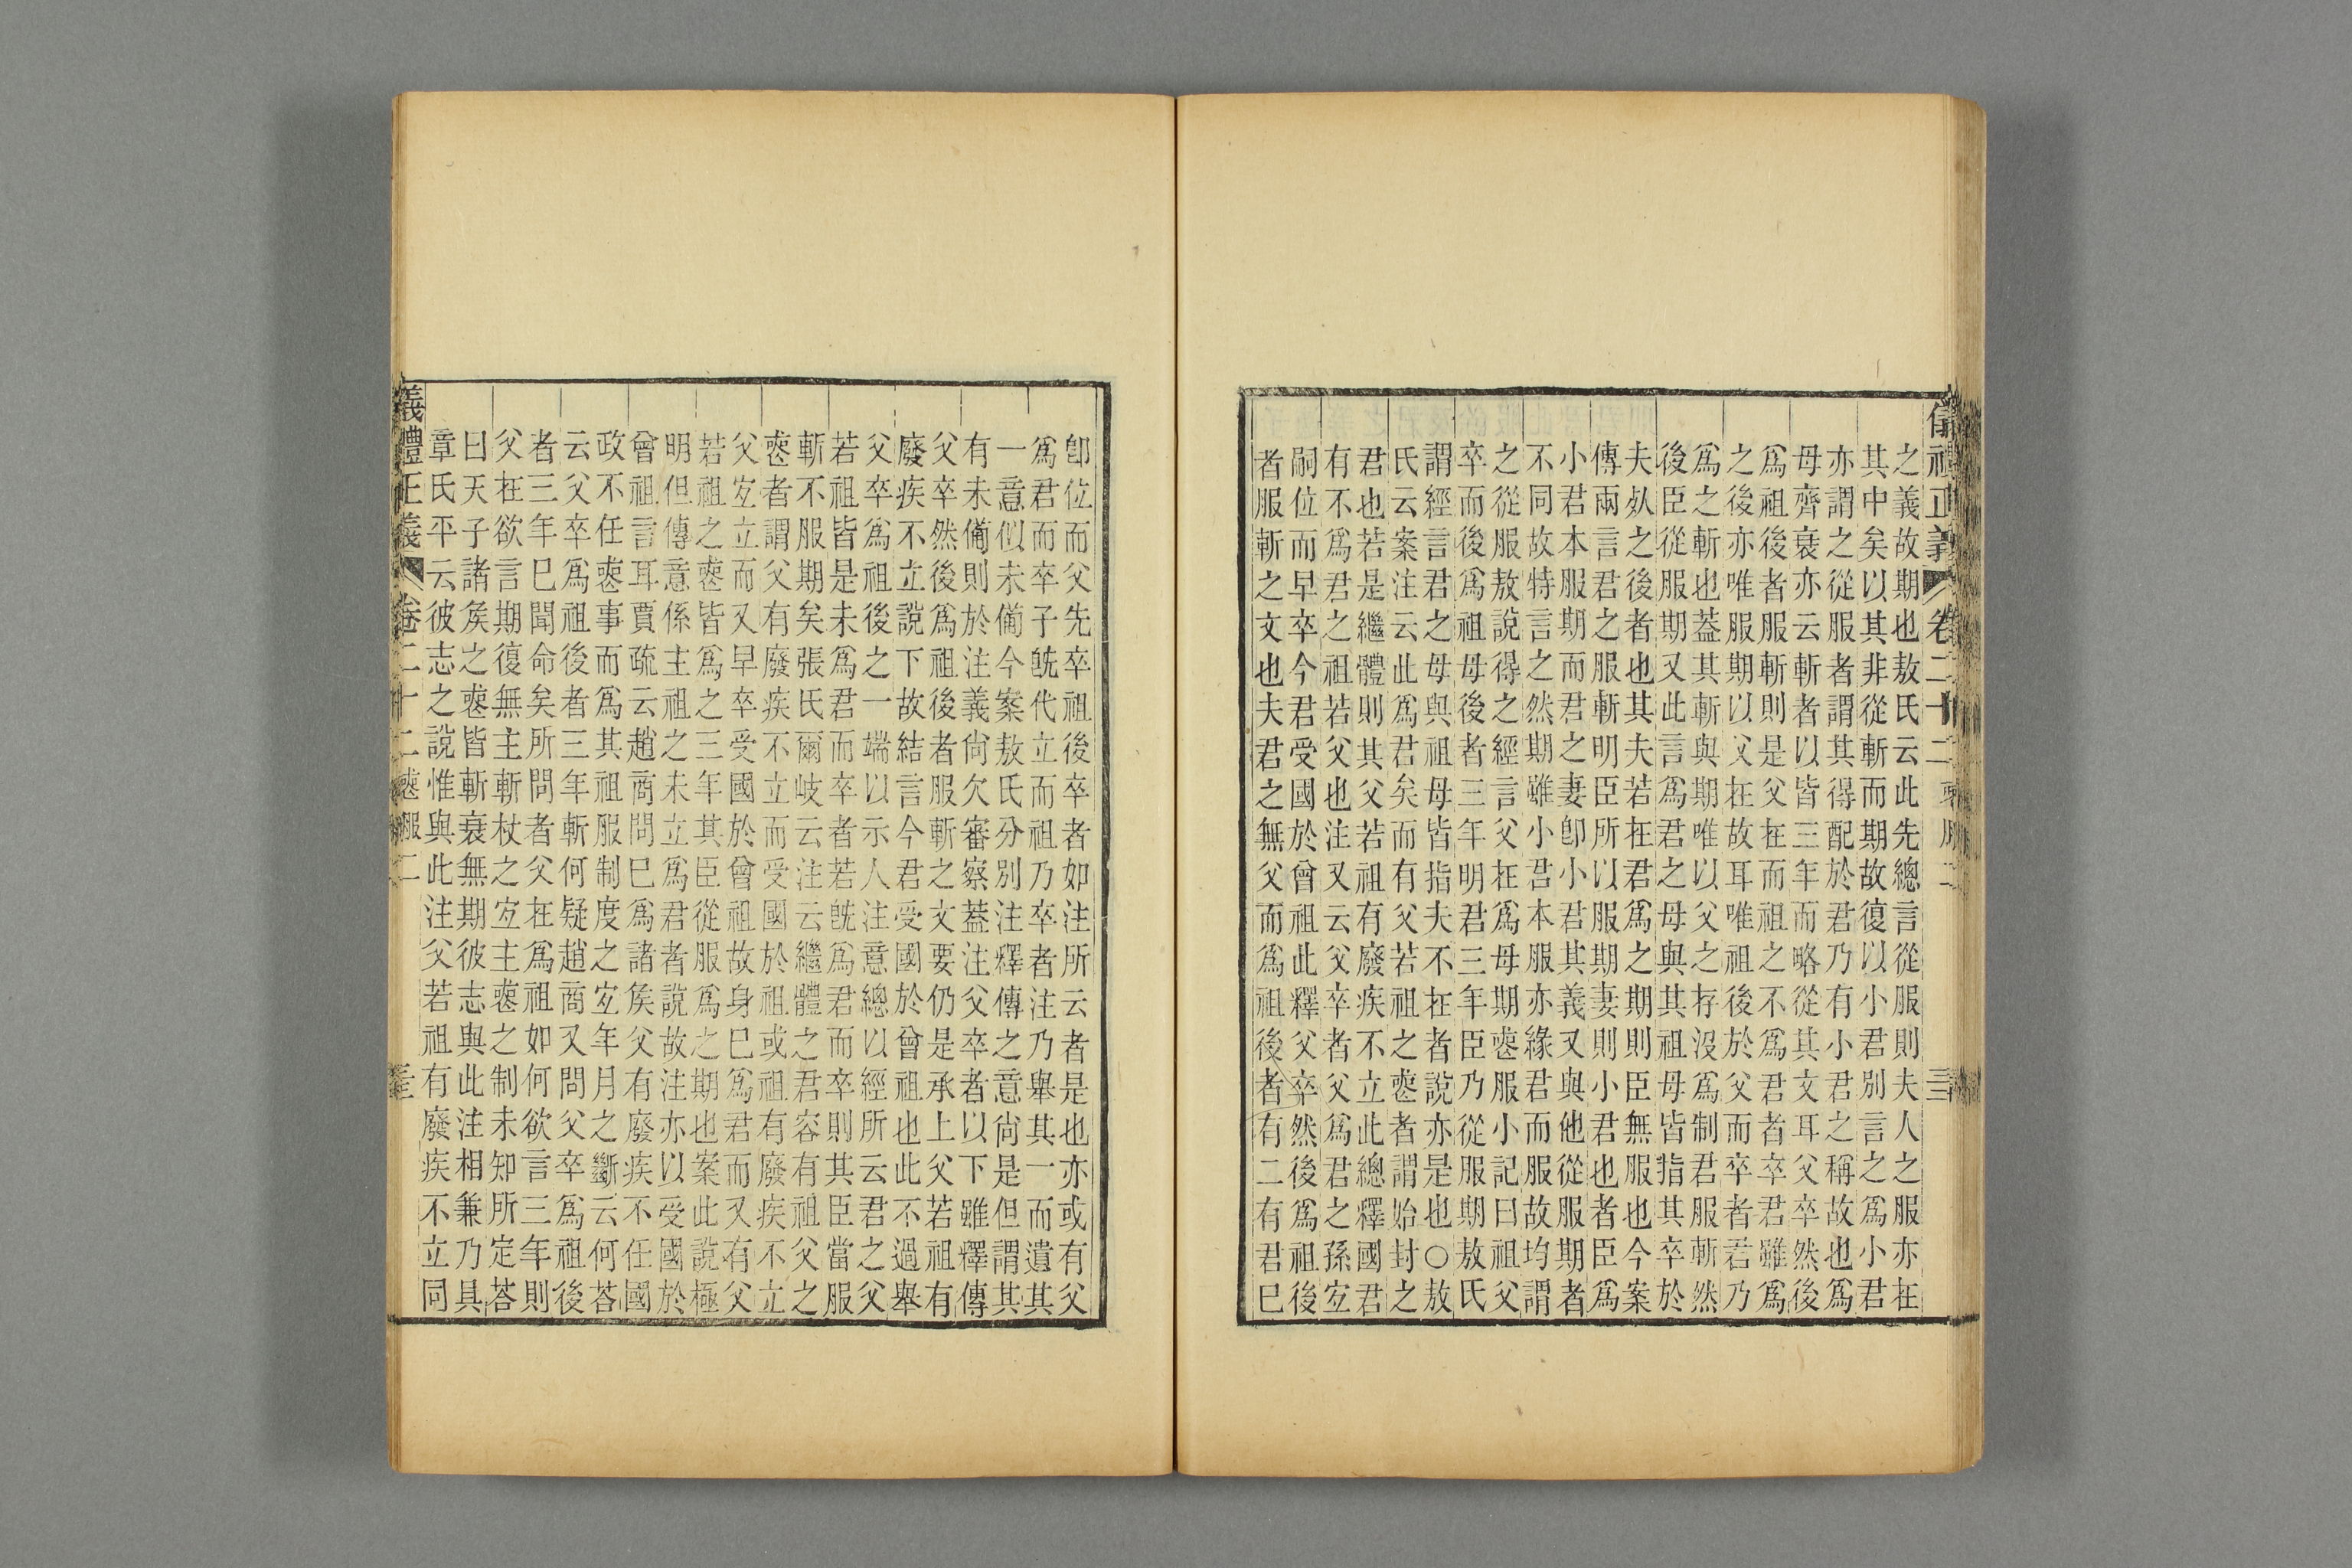 儀禮正義 卷二十二 喪服二
之義故期也敖氏云此先總言從服則夫人之服亦在
其中矣以其非從斬而期故復以小君別言之爲小君
亦謂之從服者謂其得配於君乃有小君之稱故也爲
母齊衰亦云斬者以皆三年而略從其文耳父卒然後
爲祖後者服斬則是父在而祖之不爲君者卒君雖爲
之後亦唯服期以父在故耳唯祖後於父而卒者君乃
爲之斬也蓋其斬與期唯以父之存沒爲制君服斬然
後臣從服期又此言爲君之母與其祖母皆指其卒於
夫㱕之後者也其夫若在君爲之期則臣無服也今案
傳兩言君之服斬明臣所以服期妻則小君也者臣爲
小君本服期而君之妻卽小君其義又與他從服期者
不同故特言之然期雖小君本服亦緣君而服故均謂
之從服敖說得之經言父在爲母期喪服小記曰祖父
卒而後爲祖母後者三年明君三年臣乃從服期敖氏
謂經言君之母與祖母皆指夫不在者說亦是也○敖
氏云案注云此爲君矣而有父若祖之喪者謂始封之
君也若是繼體則其父若祖有廢疾不立此總釋國君
有不爲君之祖若父也注又云父卒者父爲君之孫宜
嗣位而早卒今君受國於曾祖此釋父卒然後爲祖後
者服斬之文也夫君之無父而爲祖後者有二有君已
卽位而父先卒祖後卒者如注所云者是也亦或有父
爲君而卒子旣代立而祖乃卒者注乃舉其一而遺其
一意似未備今案敖氏分別注釋傳之意尙是但謂其
有未備則於注義尙欠審察蓋注父卒者以下雖釋傳
父卒然後爲祖後者服斬之文要仍是承上父若祖有
廢疾不立說下故結言今君受國於曾祖也此不過舉
父卒爲祖後之一端以示人注意總以經所云君之父
若祖皆是未爲君而卒者若旣爲君而卒則其臣當服
斬不服期矣張氏爾岐云注云繼體之君容有祖父之
喪者謂父有廢疾不立而受國於祖或祖有廢疾不立
父宜立而又早卒受國於曾祖故身已爲君而又有父
若祖之喪皆爲之三年其臣從服爲之期也案此說極
明但傳意係主祖之未立爲君者說故注亦以受國於
曾祖言耳賈疏云趙商問已爲諸矦父有廢疾不任國
政不任喪事而爲其祖服制度之宜年月之斷云何荅
云父卒爲祖後者三年斬何疑趙商又問父卒爲祖後
者三年已聞命矣所問者父在爲祖如何欲言三年則
父在欲言期復無主斬杖之宜主喪之制未知所定荅
曰天子諸矦之喪皆斬衰無期彼志與此注相兼乃具
章氏平云彼志之說惟與此注父若祖有廢疾不立同
儀禮正義 卷二十二 喪服二